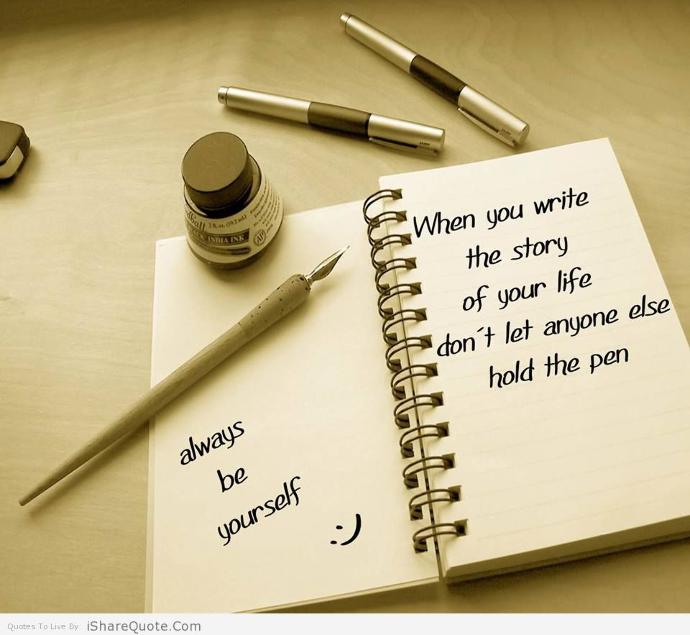 When you write
the story
of your life
don´t let anyone else
hold the pen
always
be
yourself
:)
INDIA INK
Quotes To Live By: iShareQuote.Com